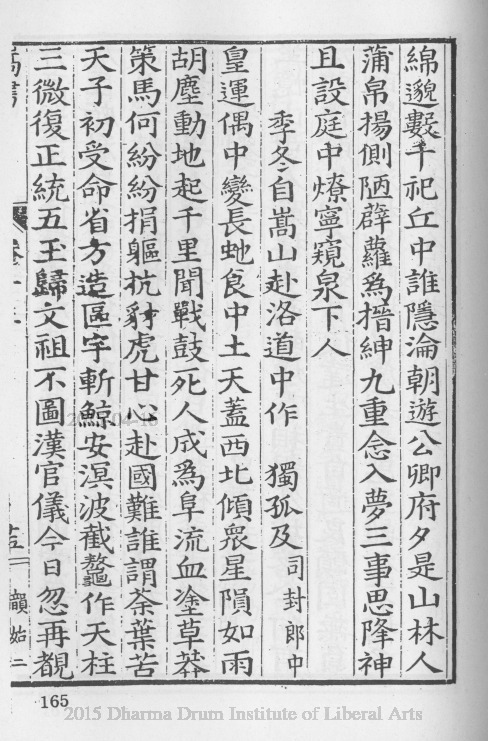 綿邈數千祀丘中誰隱淪朝遊公卿府夕是山林人
蒲帛揚側陋薜蘿爲搢紳九重念入夢三事思降神
且設庭中燎寧窺泉下人
季冬自嵩山赴洛道中作 獨孤及 司封郎中
皇運偶中變長虵食中土天蓋西北傾衆星隕如雨
胡塵動地起千里聞戰鼓死人成爲阜流血塗草莽
策馬何紛紛捐軀抗豺虎甘心赴國難誰謂荼葉苦
天子初受命省方造區宇斬鯨安溟波截鼇作天柱
三微復正統五玉歸文祖不圖漢官儀今日忽再覩
165
2015 Dharma Drum Institute of Liberal Arts